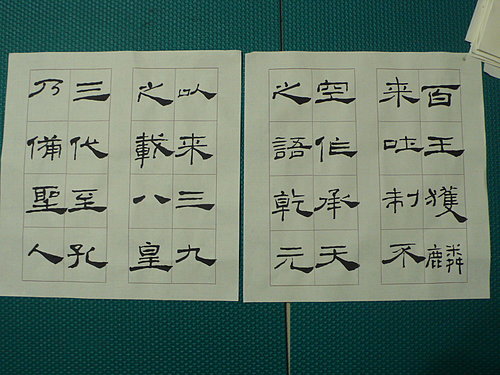 百王獲麟
来吐制不
空作承天
之語乾元
以来三九
之載八皇
三代至孔
乃備聖人